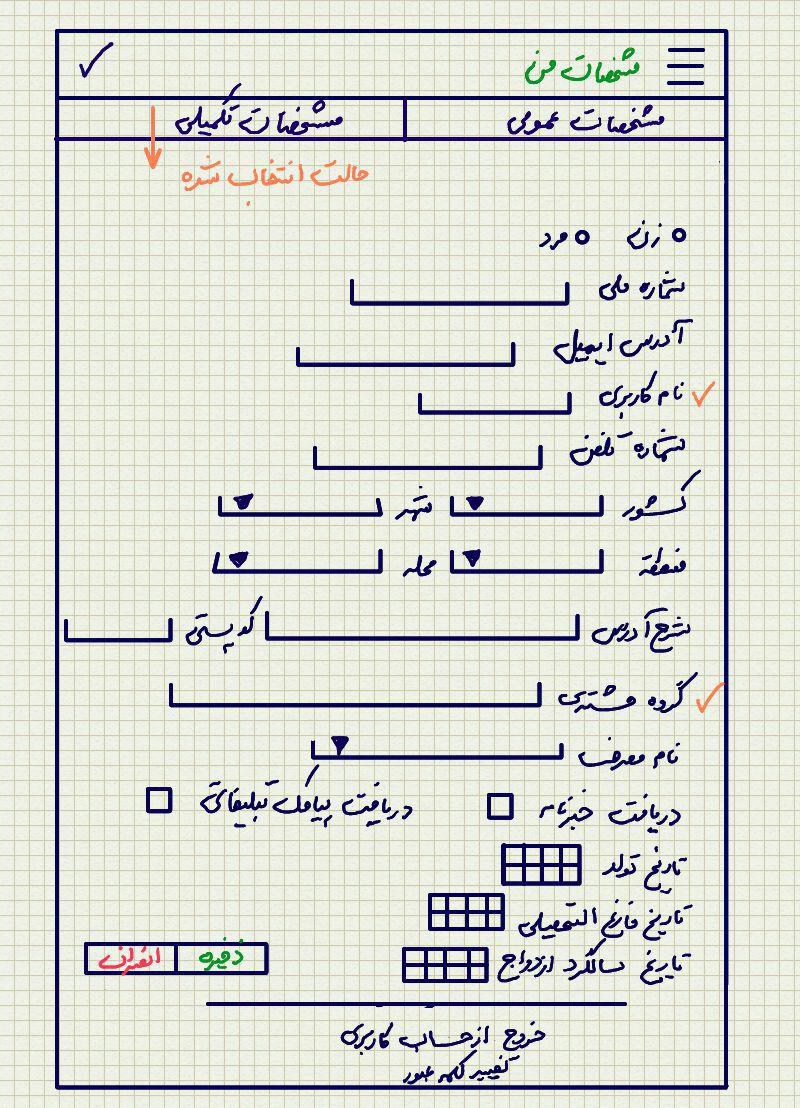 مشخصات من
مشخصات عمومی مشخصات تکمیلی
حالت انتخاب شده
زن مرد
شماره ملی
آدرس ایمیل
نام کاربری
شماره تلفن
کشور شهر
منطقه محله
شرح آدرس کد پستی
گروه مشتری
نام معرف
دریافت خبرنامه دریافت پیامک تبلیغاتی
تاریخ تولد
تاریخ فارغ التحصیلی
تاریخ سالگرد ازدواج ذخیره انصراف
خروج از حساب کاربری
تغییر کلمه عبور